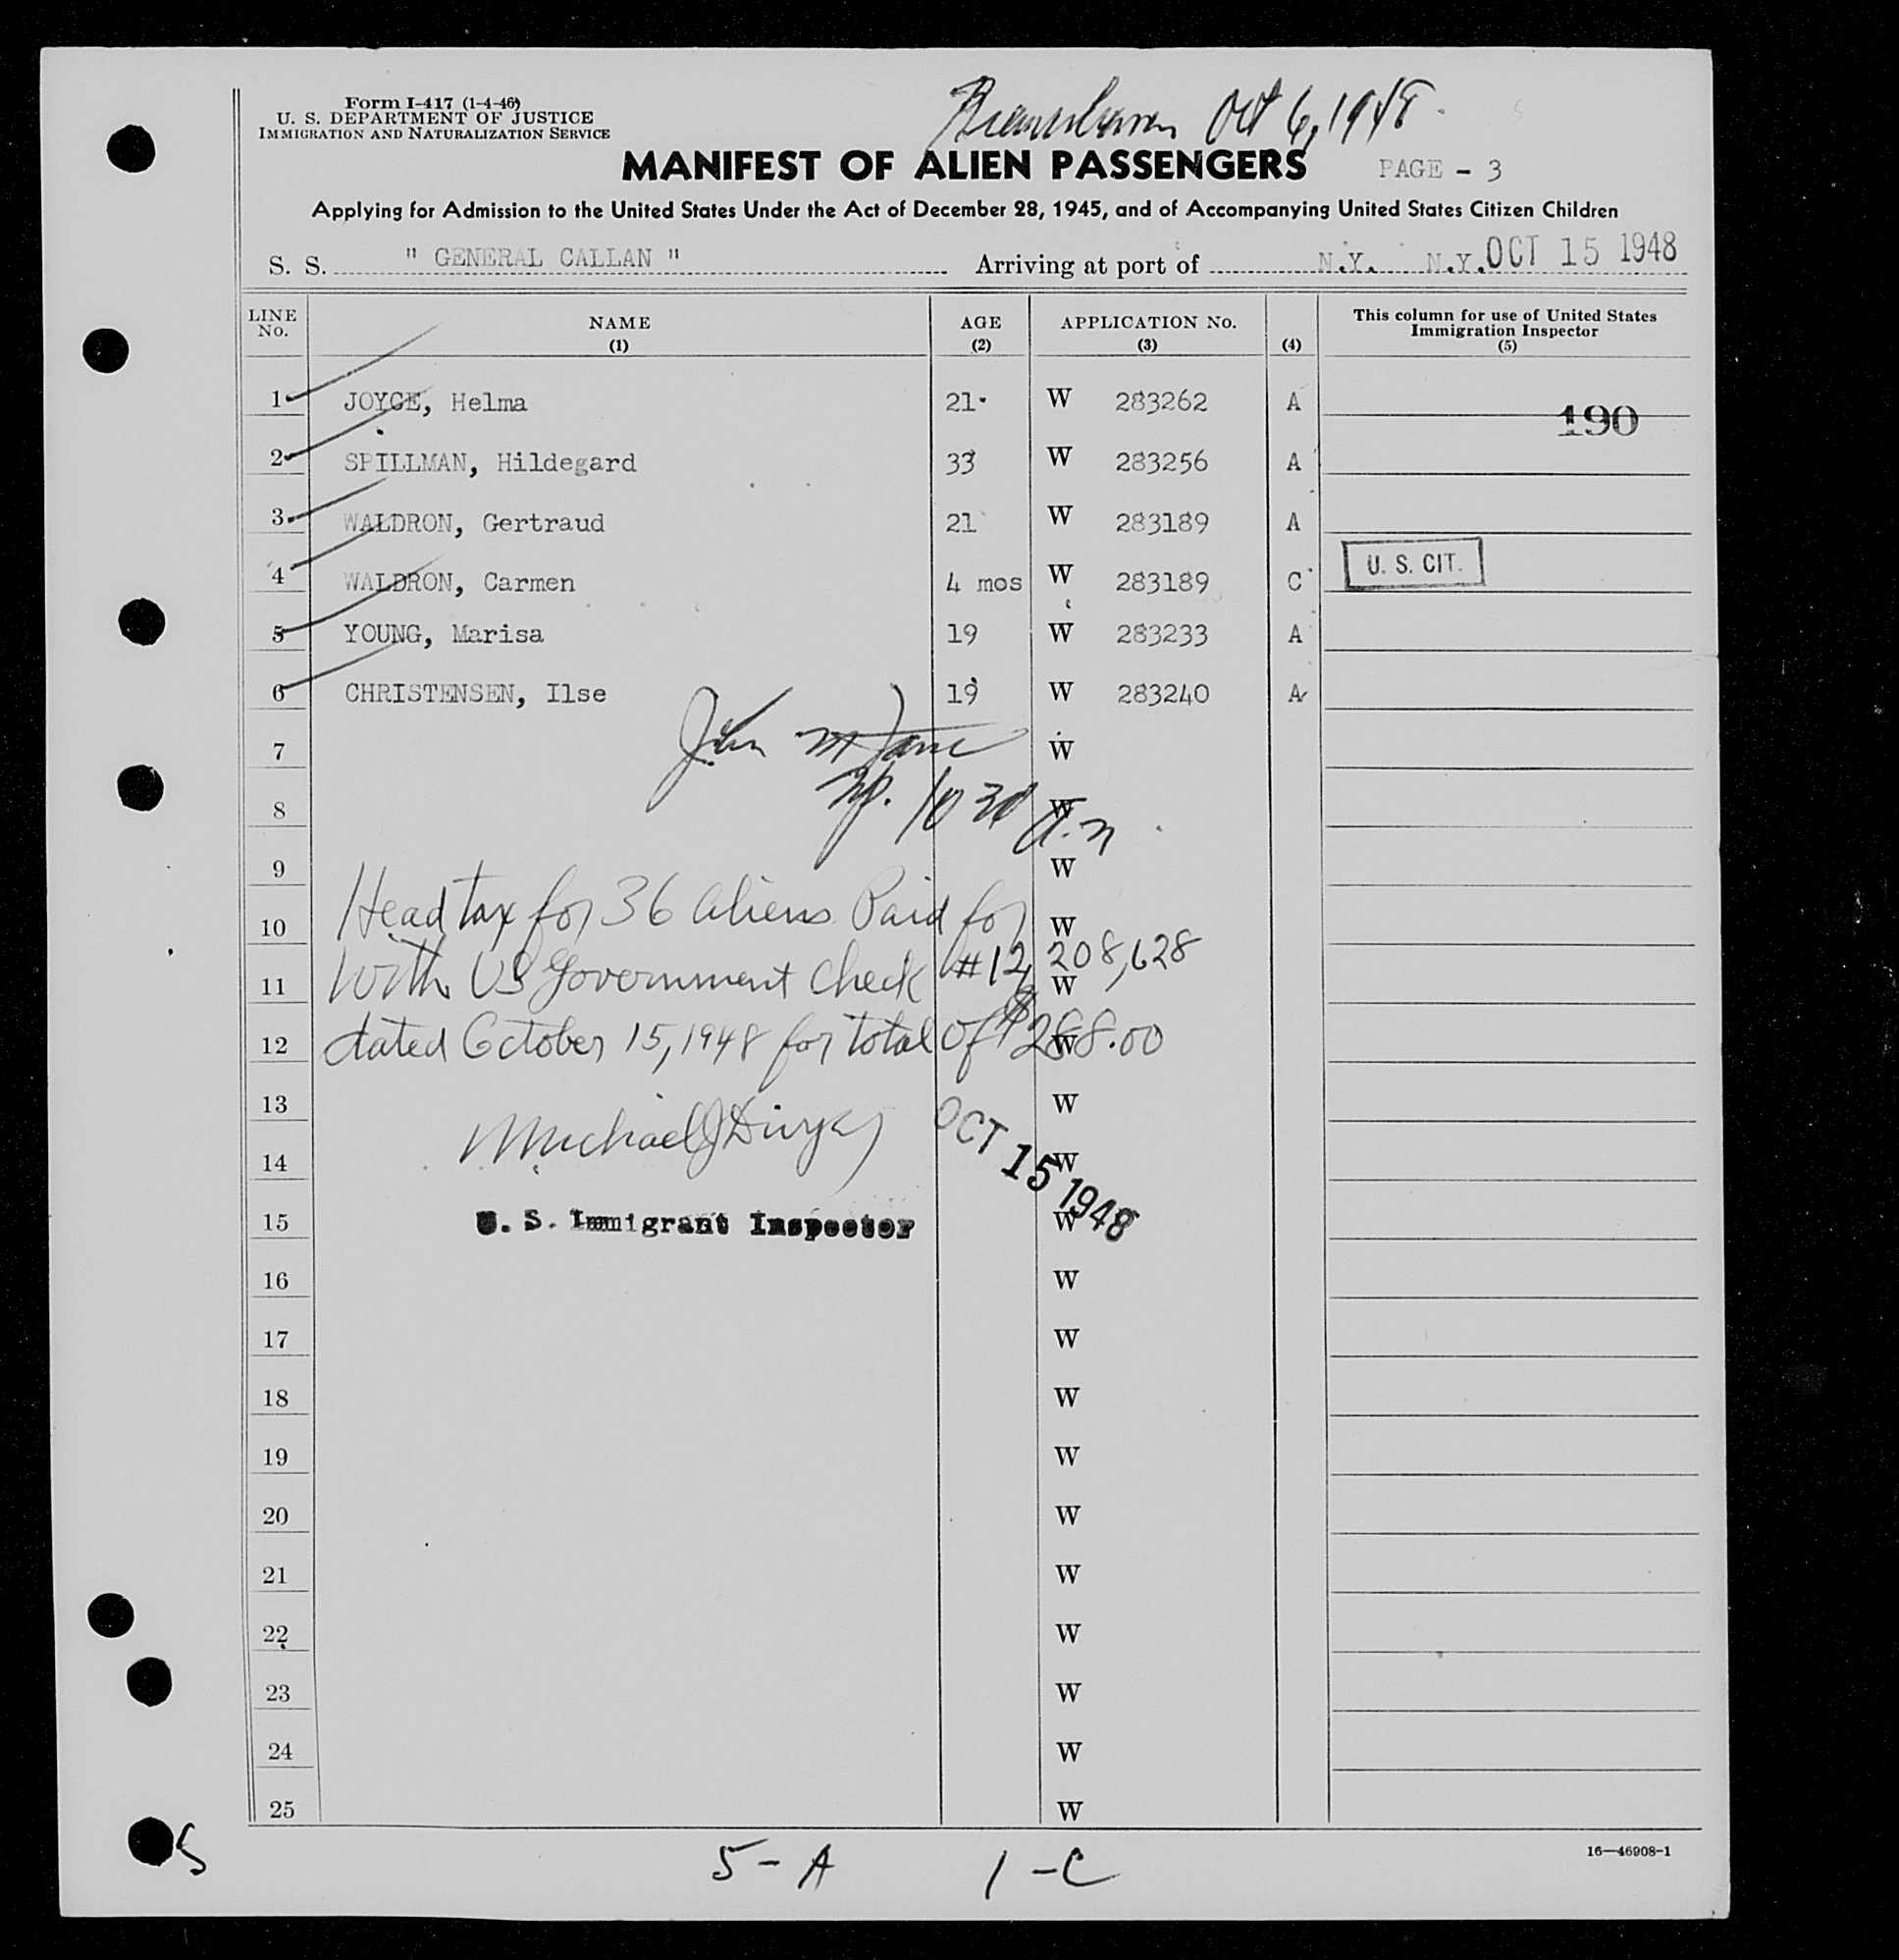 Form I-417 (1-4-46)
U. S. DEPARTMENT OF JUSTICE
IMMIGRATION AND NATURALIZATION SERVICE
Oct 6, 1948
MANIFEST OF ALIEN PASSENGERS
PAGE - 3
Applying for Admission to the United States Under the Act of December 28, 1945, and of Accompanying United States Citizen Children
S. S. " GENERAL CALLAN " Arriving at port of N.Y. N.Y. OCT 15 1948
LINE No. NAME (1) AGE (2) APPLICATION No. (3) (4) This column for use of United States Immigration Inspector (5)
1 JOYCE, Helma 21 W 283262 A 190
2 SPILLMAN, Hildegard 33 W 283256 A
3 WALDRON, Gertraud 21 W 283189 A
4 WALDRON, Carmen 4 mos W 283189 C U. S. CIT.
5 YOUNG, Marisa 19 W 283233 A
6 CHRISTENSEN, Ilse 19 W 283240 A
7 John M W
8 W
9 W
10 Head tax for 36 aliens Paid for W
11 with US Government check #12,208,628 W
12 dated October 15, 1948 for total of $288.00 W
13 W
14 Michael J W
OCT 15 1948
15 U. S. Immigrant Inspector W
16 W
17 W
18 W
19 W
20 W
21 W
22 W
23 W
24 W
25 W
16—46908-1
5
5 - A 1 - C